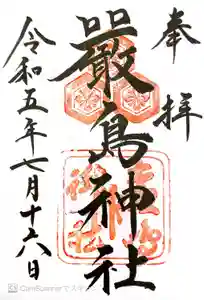 奉拝
嚴島神社
令和五年七月十六日
CamScannerでスキャン